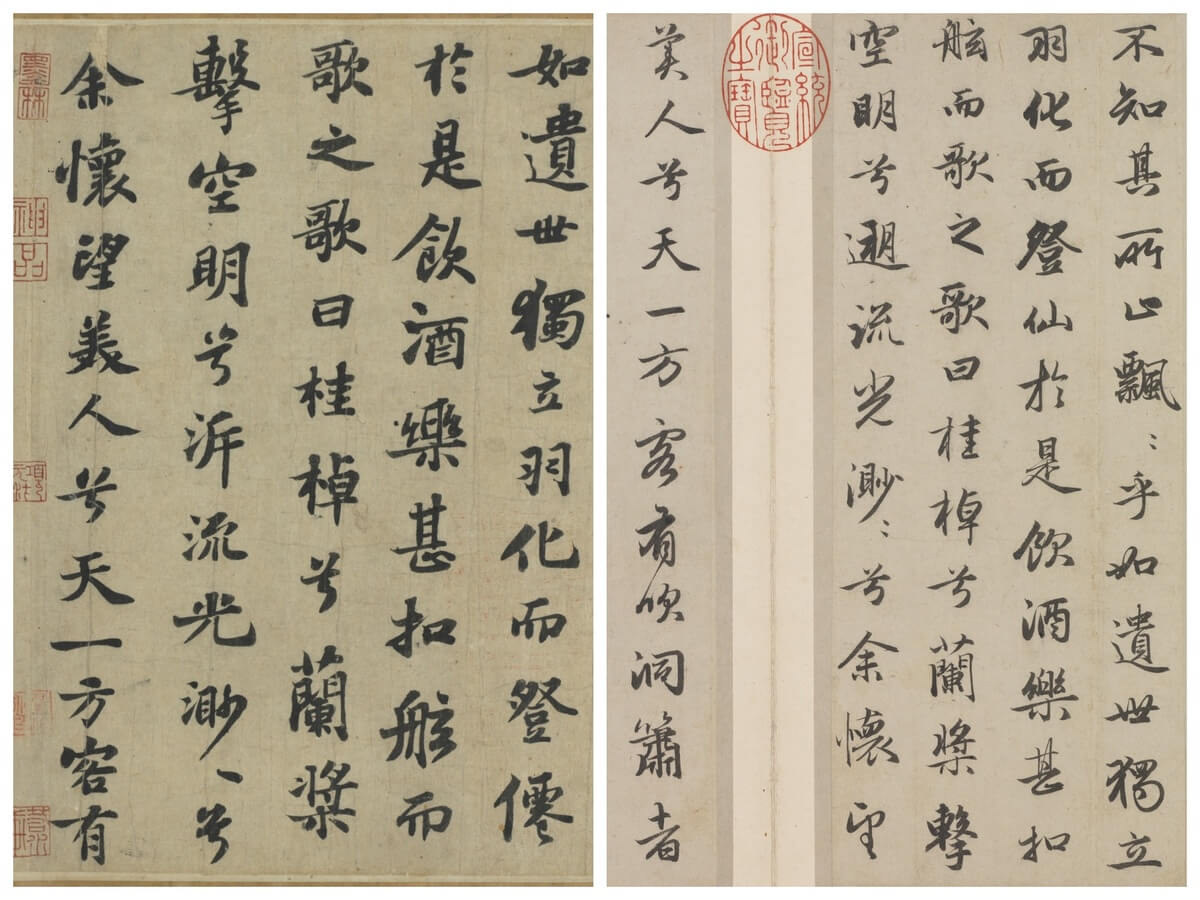 如遺世獨立羽化而登僊
於是飲酒樂甚扣舷而
歌之歌曰桂棹兮蘭槳
擊空明兮泝流光渺〻兮
余懷望美人兮天一方客有
墨林
神品
不知其所止飄〻乎如遺世獨立
羽化而登仙於是飲酒樂甚扣
舷而歌之歌曰桂棹兮蘭槳擊
空明兮遡流光渺〻兮余懷望
宣統御覽之寶
美人兮天一方客有吹洞簫者